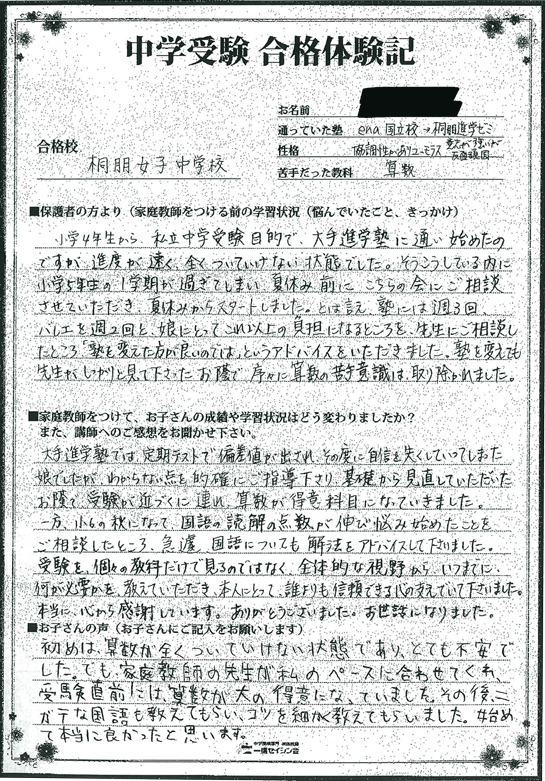 中学受験 合格体験記
お名前
通っていた塾 ena国立校→桐朋進学ゼミ
合格校 桐朋女子中学校
性格 協調性がありユーモラス
苦手だった教科 算数
■保護者の方より（家庭教師をつける前の学習状況（悩んでいたこと、きっかけ）
小学4年生から、私立中学受験目的で、大手進学塾に通い始めたの
ですが、進度が速く、全くついていけない状態でした。そうこうしている内に
小学5年生の1学期が過ぎてしまい、夏休み前にこちらの会にご相談
させていただき、夏休みからスタートしました。とは言え、塾には週3回、
バレエを週2回と、娘にとってこれ以上の負担になるところを、先生にご相談し
たところ「塾を変えた方が良いのでは」というアドバイスをいただきました。塾を変えても
先生がしっかりと見て下さったお陰で、序々に算数の苦手意識は、取り除かれました。
■家庭教師をつけて、お子さんの成績や学習状況はどう変わりましたか？
また、講師へのご感想をお聞かせ下さい。
大手進学塾では、定期テストで偏差値が出され、その度に自信を失くしていってしまった
娘でしたが、わからない点を的確にご指導下さり、基礎から見直していただいた
お陰で、受験が近づくに連れ、算数が得意科目になっていきました。
一方、小6の秋になって、国語の読解の点数が伸び悩み始めたことを
ご相談したところ、急遽、国語についても解法をアドバイスして下さいました。
受験を、個々の教科だけで見るのではなく、全体的な視野から、いつまでに、
何が必要かを、教えていただき、本人にとって、誰よりも信頼できる心の支えでいて下さいました。
本当に、心から感謝しています。ありがとうございました。お世話になりました。
■お子さんの声（お子さんにご記入をお願いします）
初めは、算数が全くついていけない状態であり、とても不安で
した。でも、家庭教師の先生が私のペースに合わせてくれ、
受験直前には、算数が大の得意になっていました。その後、ニ
ガテな国語も教えてもらい、コツを細かく教えてもらいました。始め
て本当に良かったと思います。
中学受験専門 家庭教師
一橋セイシン会